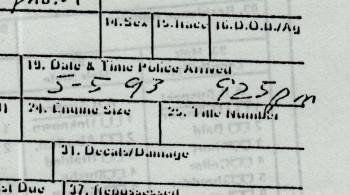 14. Sex 15. Race 16. D.O.B./Ag
19. Date & Time Police Arrived
5-5 93 925pm
24. Engine Size 25. Title Number
31. Decals/Damage
st Due 37. Repossessed